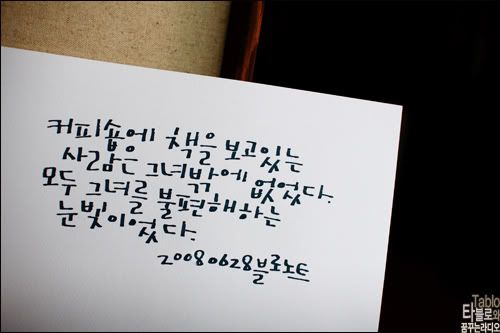 커피숍에 책을 보고있는
사람은 그녀밖에 없었다.
모두 그녀를 불편해하는
눈빛이었다.
20080628블로노트
Tablo
타블로와
꿈꾸는라디오